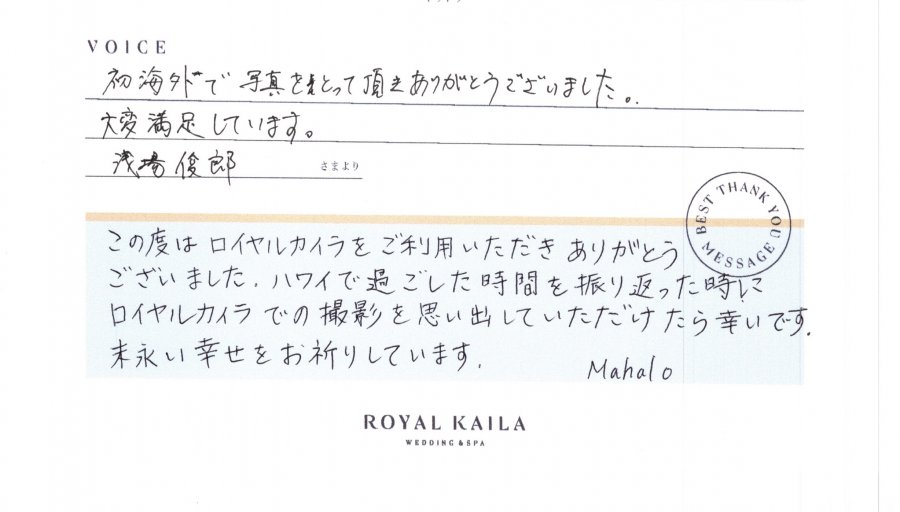 VOICE
初海外で写真をとって頂きありがとうございました。
大変満足しています。
浅場俊郎 さまより
BEST THANK YOU MESSAGE
この度はロイヤルカイラをご利用いただきありがとう
ございました. ハワイで過ごした時間を振り返った時に
ロイヤルカイラでの撮影を思い出していただけたら幸いです.
末永い幸せをお祈りしています.
Mahalo
ROYAL KAILA
WEDDING & SPA